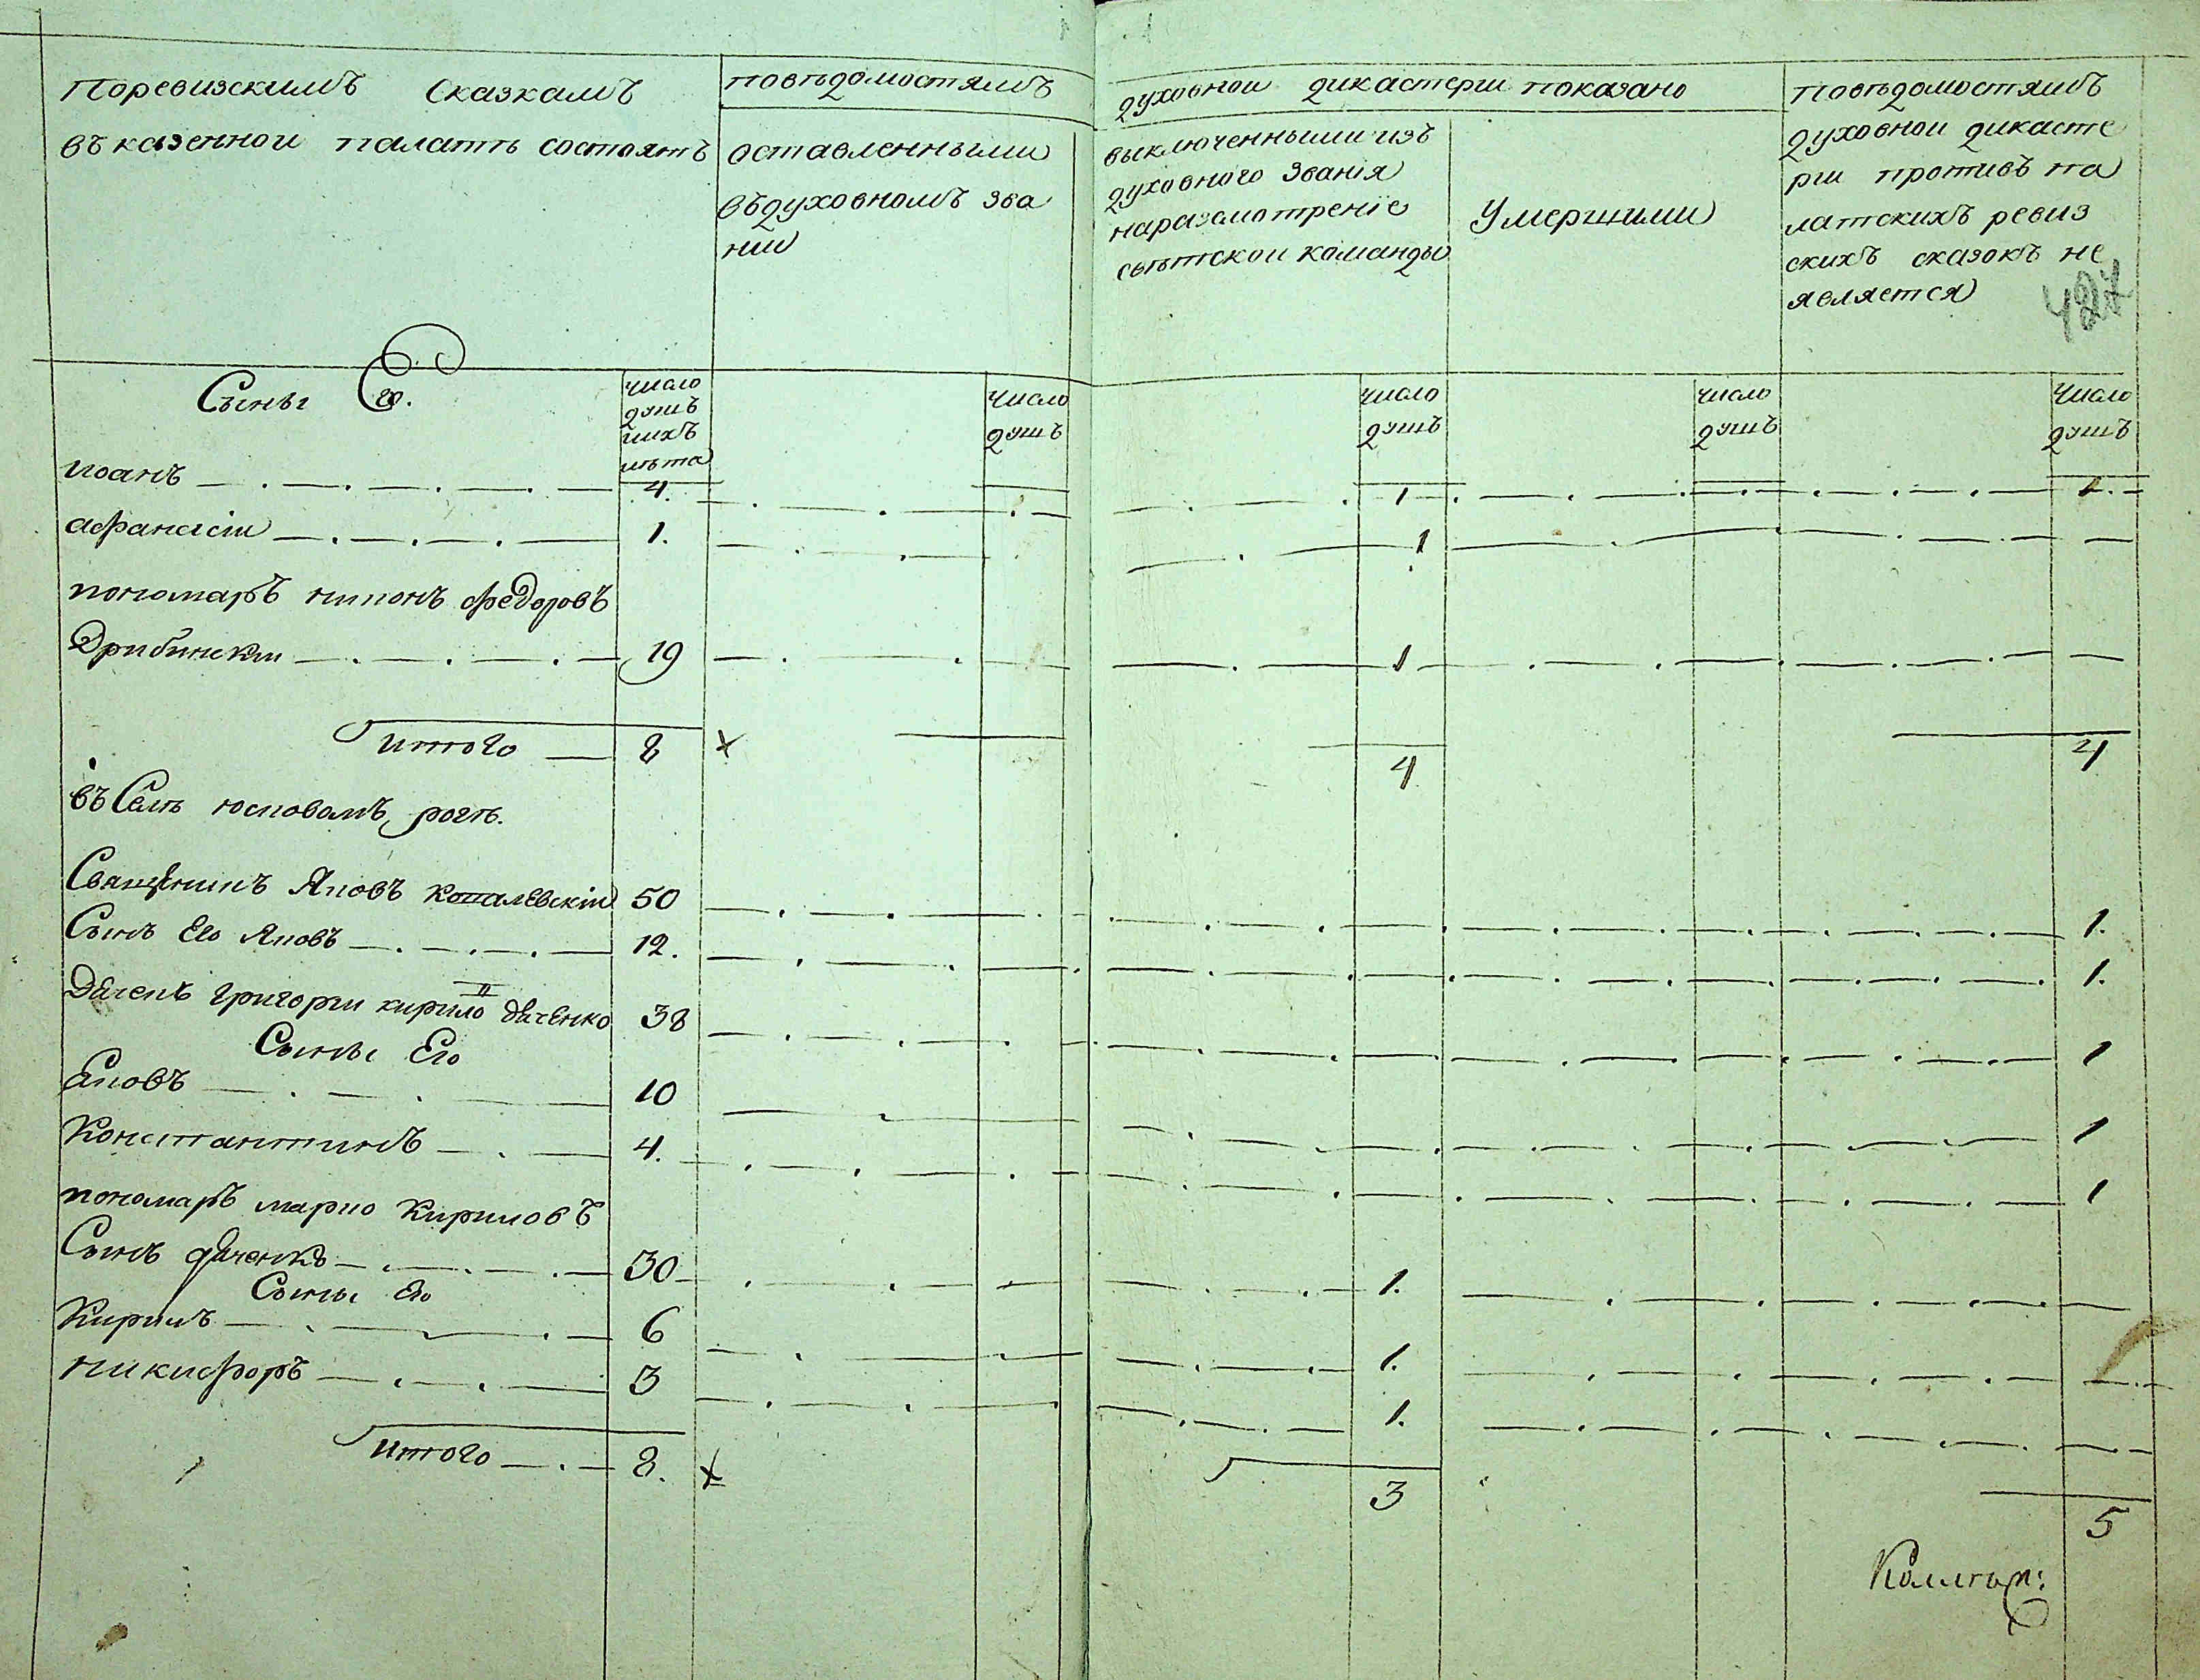 Поревизскимъ Сказкамъ
въ казенной палатѣ состоятъ
повѣдомостямъ
оставленными
въдуховномъ зва
нии
духовной дикастерии показано
выключенными изъ
духовного звания
наразсмотрение
свѣтской команды
Умершими
повѣдомостямъ
духовной дикасте
рии противъ па
латскихъ ревиз
скихъ сказокъ не
является
427
Сыны Его.
число
душъ
ихъ
лѣта
число
душъ
число
душъ
число
душъ
число
душъ
иоанъ 4. 1 1.
афанасіи 1. 1
пономаръ нипонъ федоровъ
Дрибинскии 19 1
итого 8 4 4
въ Селѣ юсповомъ рогѣ.
Священикъ Яковъ Копалевскіи 50 1.
Сынъ Его Яковъ 12. 1.
Дяченъ григории кирило дяченко 38 1
Сыны Его
Яковъ 10 1
Константинъ 4. 1
пономаръ марко Кириловъ
Сынъ дяченко 30 1.
Сыны Его
Кирилъ 6 1.
никифоръ 3 1.
итого 8. 3 5